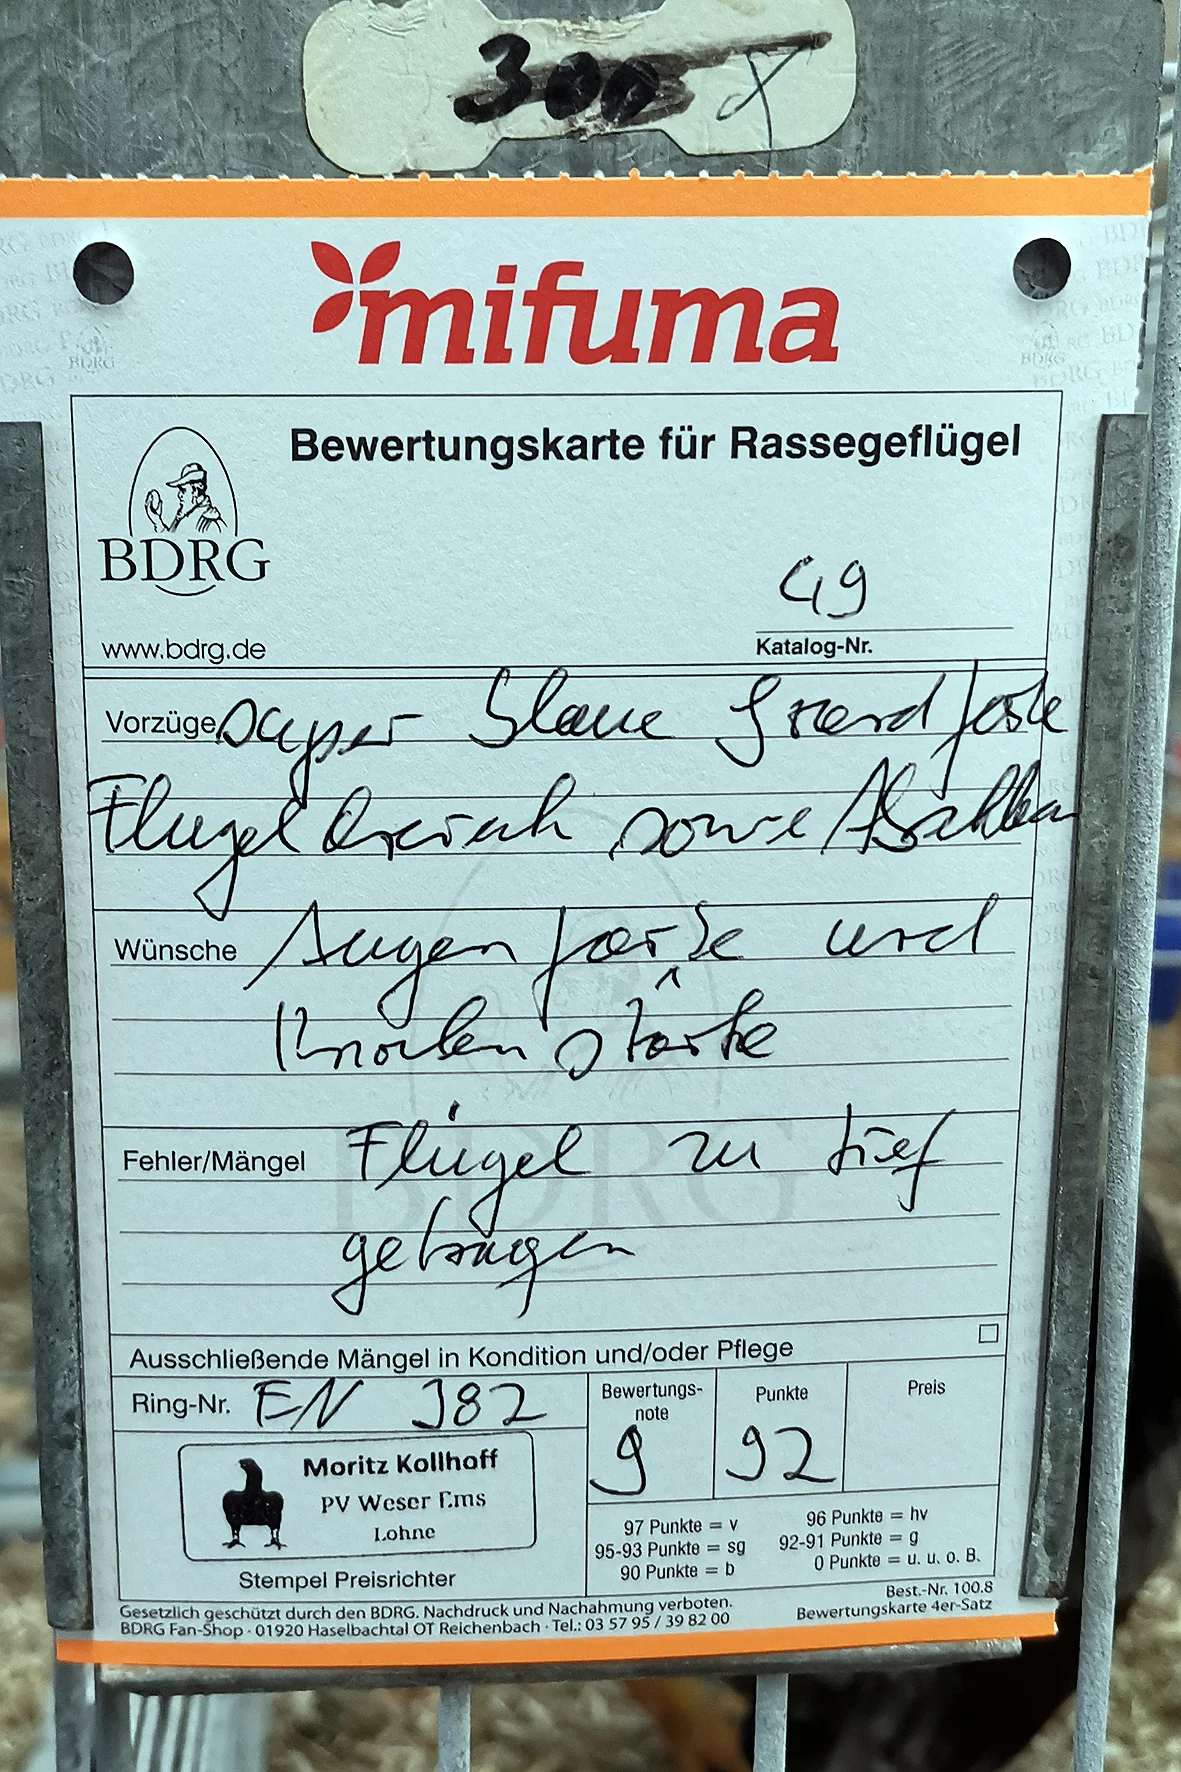 300 x
mifuma
Bewertungskarte für Rassegeflügel
BDRG
www.bdrg.de
49
Katalog-Nr.
Vorzüge super blaue Grundfarbe
Flügel sowie
Wünsche Augenfarbe und
Knochenstärke
Fehler/Mängel Flügel zu tief
getragen
Ausschließende Mängel in Kondition und/oder Pflege
Ring-Nr. EN 982
Bewertungs-
note
9
Punkte
92
Preis
Moritz Kollhoff
PV Weser Ems
Lohne
Stempel Preisrichter
97 Punkte = v
95-93 Punkte = sg
90 Punkte = b
96 Punkte = hv
92-91 Punkte = g
0 Punkte = u. u. o. B.
Gesetzlich geschützt durch den BDRG. Nachdruck und Nachahmung verboten.
BDRG Fan-Shop · 01920 Haselbachtal OT Reichenbach · Tel.: 03 57 95 / 39 82 00
Best.-Nr. 100.8
Bewertungskarte 4er-Satz